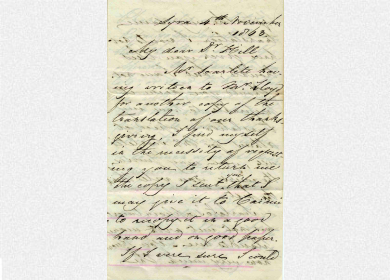 Syra 4th November
1863
My dear Dr Hill
Mr. Scarlett hav-
ing written to Mr. Lloyd
for another copy of the
translation of our thanks
giving, I find myself
in the necessity of request-
ing you to return me
the copy I sent you that I
may give it to
to recopy it in a good
hand and on good paper.
If I were sure I could